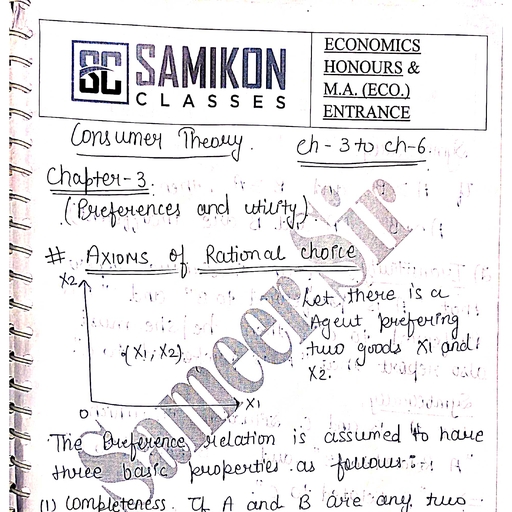 SC SAMIKON
CLASSES
ECONOMICS
HONOURS &
M.A. (ECO.)
ENTRANCE
Consumer Theory. Ch-3 to Ch-6.
Chapter-3.
(Preferences and utility)
# Axioms of Rational choice
X2
Let there is a
Agent prefering
two goods X1 and
X2.
(X1, X2)
0
X1
Sameer Sir
The Preference relation is assumed to have
three basic properties as follows:
(1) Completeness. If A and B are any two